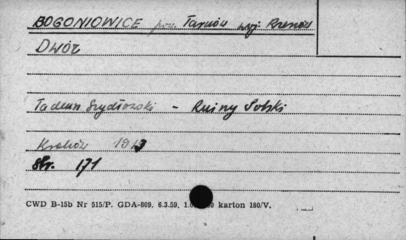 BOGONIOWICE pow. Tarnów woj. Rzeszów
Dwór
Tadeusz Szydłowski - Ruiny Polski
Kraków 1919
Str. 171
CWD B-15b Nr 515/P. GDA-869. 6.3.59. karton 180/V.